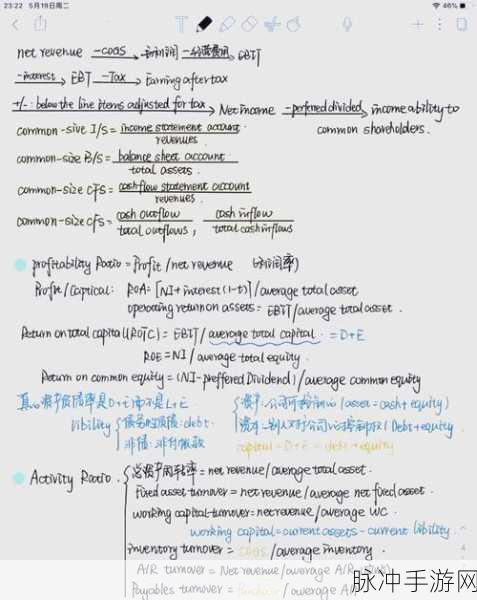 23:22 5月19日周二
46%
net revenue —COGS→ 毛利润 —经营费用→ EBIT
—interest→ EBT —Tax→ Earning after tax
+/-: below the line items adjusted for tax → Net income —preferred divided→ income ability to
common shareholders.
common-sive I/S = income statement account / revenues.
common-size B/S = balance sheet account / total assets.
common-size CFS = cash flow statement account / revenues.
common-size CFS = cash outflow / total outflows, cash inflow / total cash inflows
profitability Ratio = Profit / net revenue
Profit / Captical: ROA = [NI + interest(1-t)] / average total asset
operating return on assets = EBIT / average total asset.
Return on total capital (ROTC) = EBIT / average total capital. = D+E
ROE = NI / average total equity.
Return on common equity = (NI - preffered Dividend) / average common equity
(asset = cash + equity)
libility debt.
Debt + equity
capital = D+E = debt + equity
Activity Ratio.
总资产周转率 = net revenue / average total asset.
Fixed asset turnover = net revenue / average net fixed asset.
working capital turnover: net revenue / average WC.
working capital = current assets - current libility.
inventory turnover = COGS / average inventory.
A/R turnover = Net revenue / average A/R
Payables turnover = Purchase / average
脉冲手游网